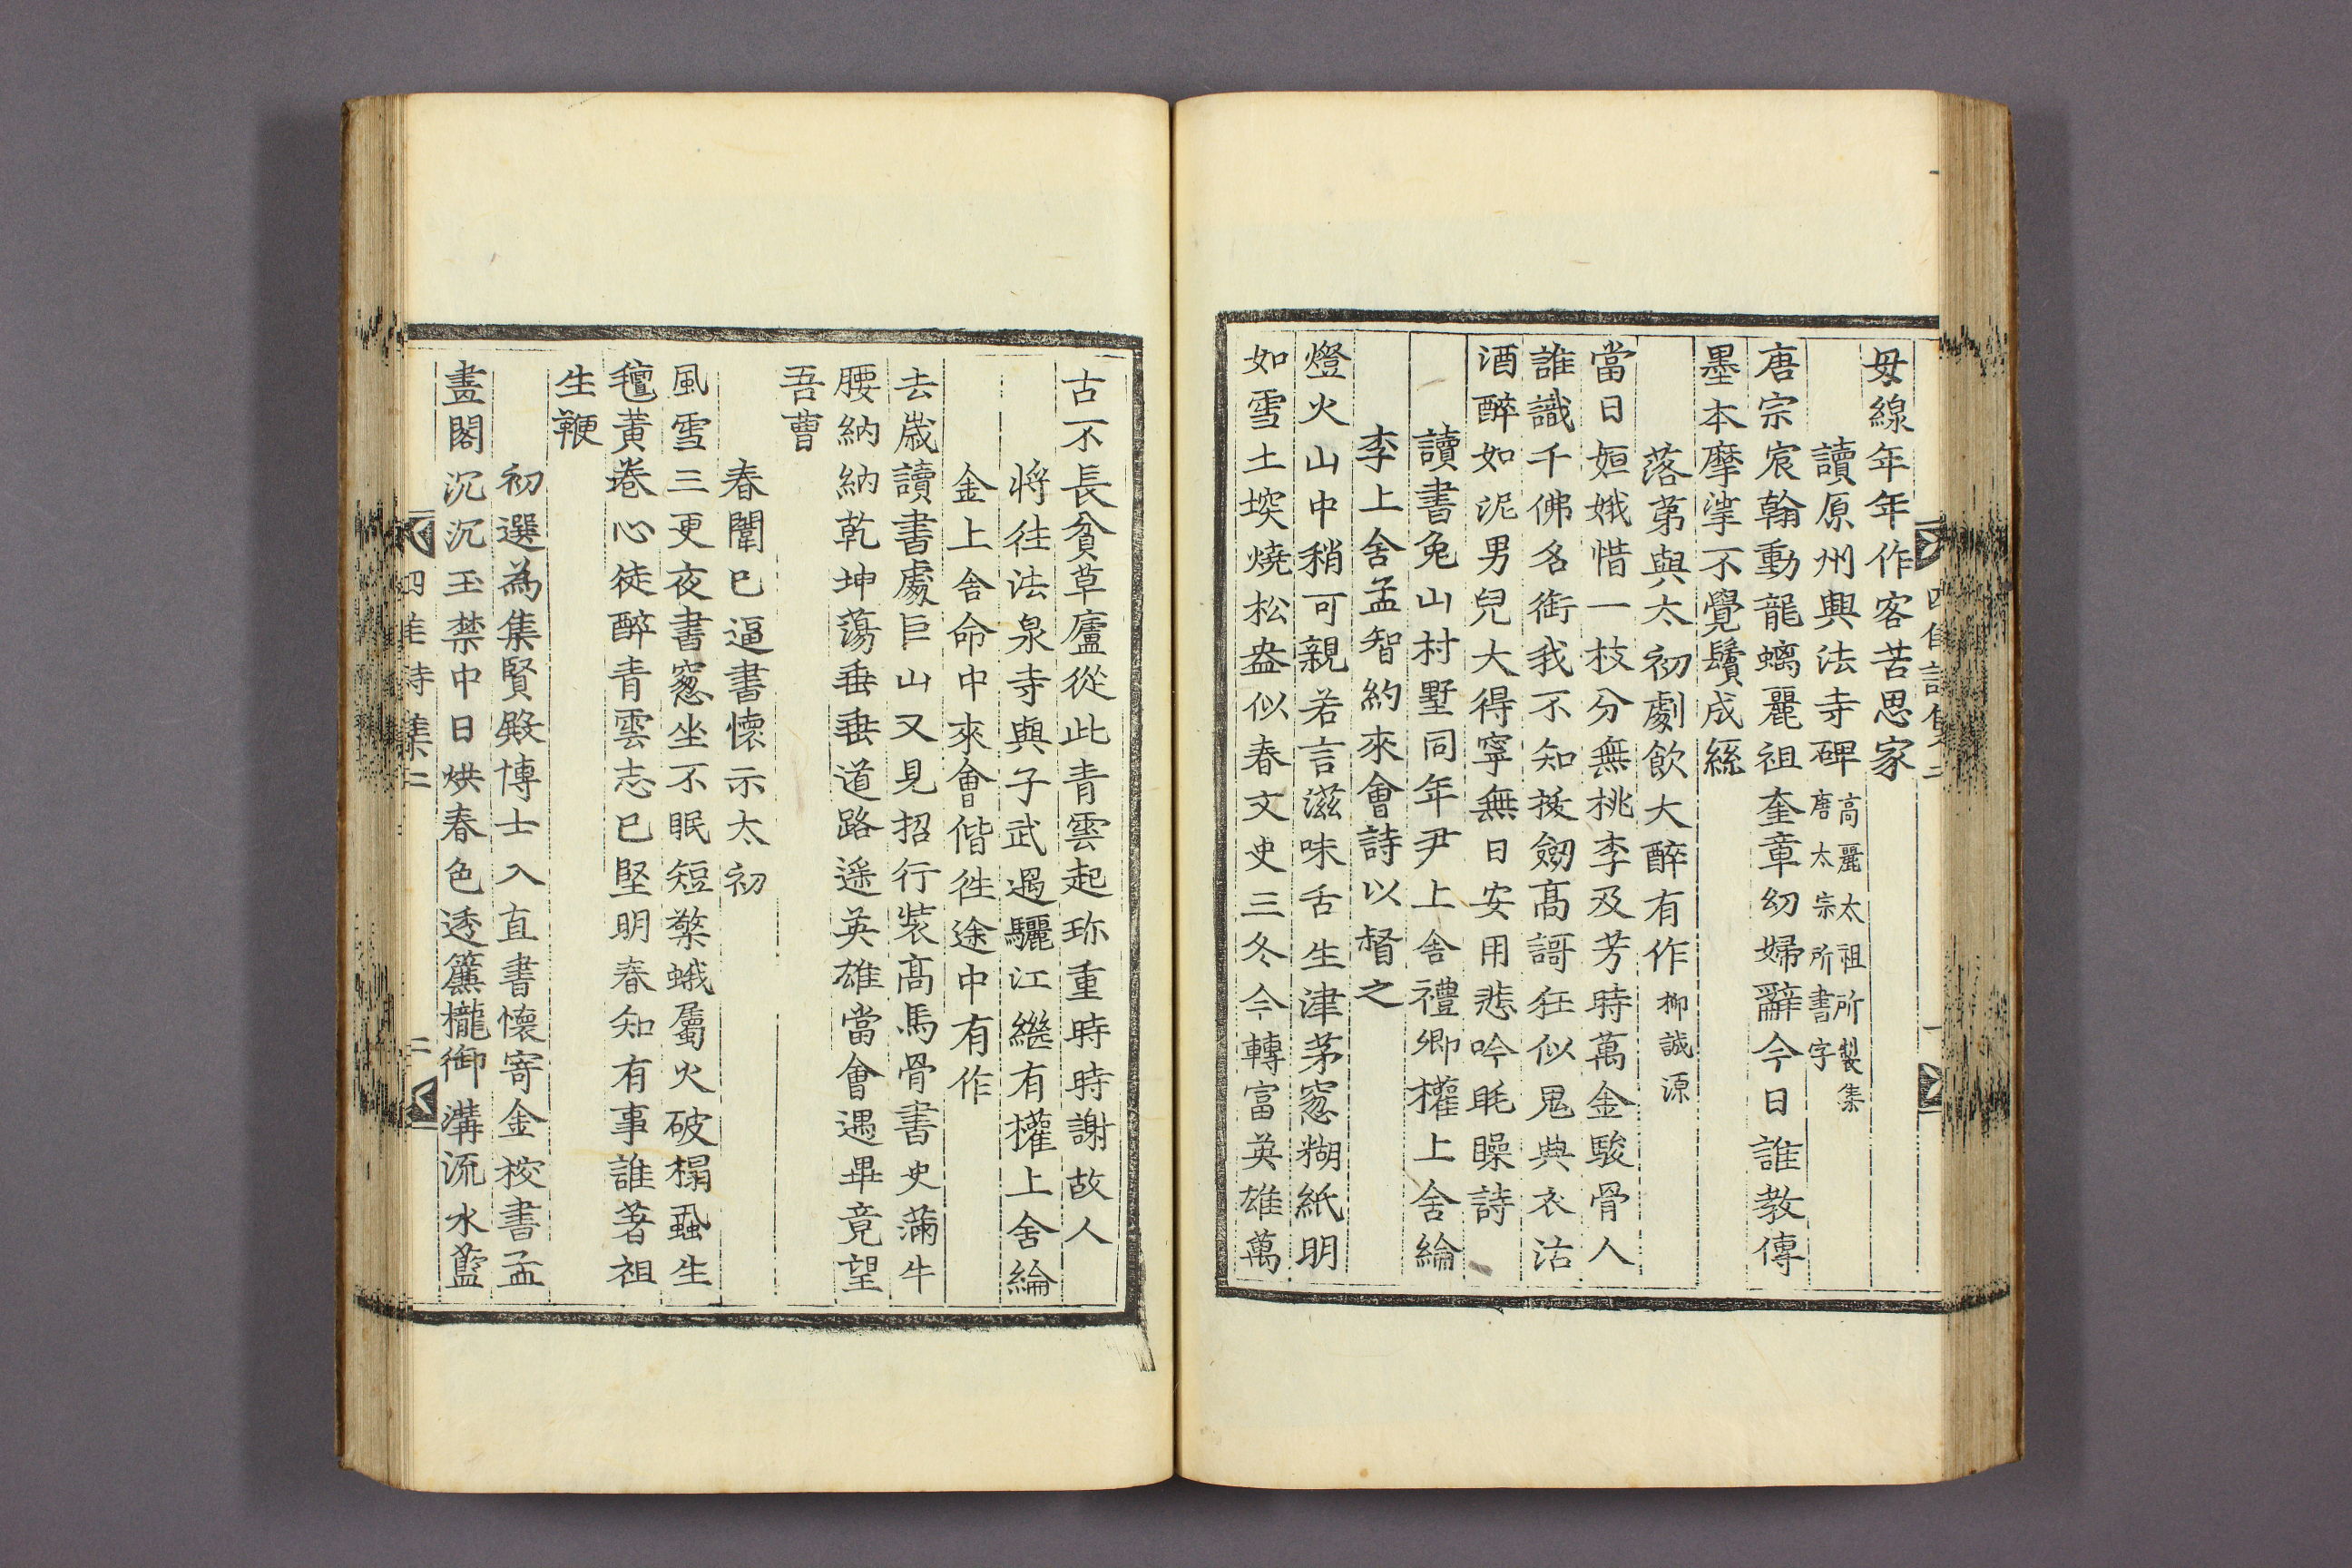 母線年年作客苦思家
讀原州興法寺碑 高麗太祖所製集
唐太宗所書字
唐宗宸翰動龍螭麗祖奎章幼婦辭今日誰教傳
墨本摩挲不覺鬢成絲
落第與太初劇飮大醉有作 柳誠源
當日姮娥惜一枝分無桃李及芳時萬金駿骨人
誰識千佛名銜我不知拔劒髙謌狂似鬼典衣沽
酒醉如泥男兒大得寧無日安用悲吟眊矂詩
讀書兔山村墅同年尹上舍禮卿權上舍綸
李上舍孟智約來會詩以督之
燈火山中稍可親若言滋味舌生津茅窓糊紙明
如雪土堗燒松盎似春文史三冬今轉富英雄萬
古不長貧草廬從此青雲起珎重時時謝故人
將往法泉寺與子武遇驪江継有權上舍綸
金上舍命中來會偕徃途中有作
去歲讀書處巨山又見招行裝髙馬骨書史滿牛
腰納納乾坤蕩垂垂道路遥英雄當會遇畢竟望
吾曹
春闈已逼書懷示太初
風雪三更夜書窓坐不眠短檠蛾屬火破榻蝨生
氊黃卷心徒醉青雲志已堅明春知有事誰著祖
生鞭
初選為集賢殿博士入直書懷寄金校書孟
畫閣沉沉玉禁中日烘春色透簾櫳御溝流水藍
四佳詩集二
二